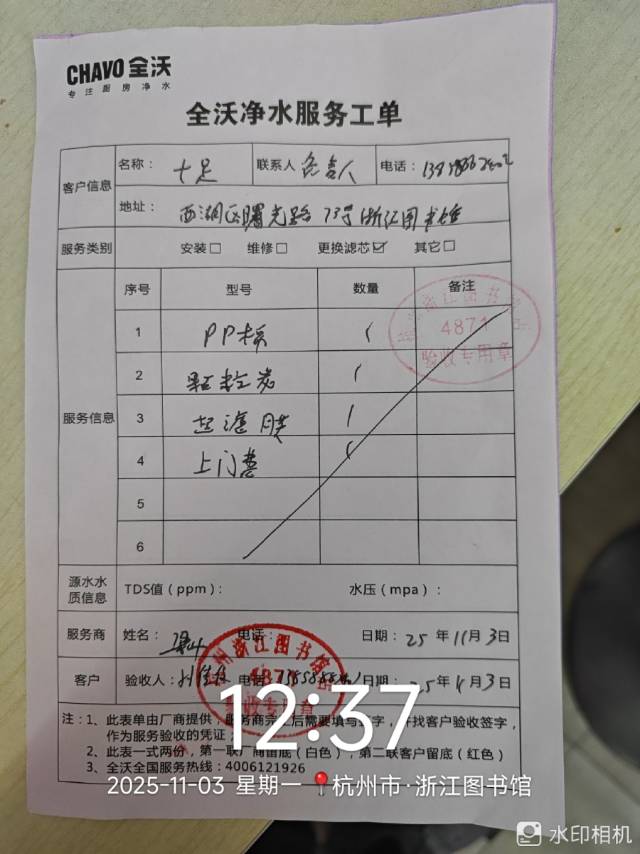 CHAVO 全沃
专注厨房净水
全沃净水服务工单
客户信息
名称： 十足 联系人 负责人 电话：
地址： 西湖区曙光路73号浙江图书馆
服务类别 安装□ 维修□ 更换滤芯☑ 其它□
服务信息
序号 型号 数量 备注
1 PP棉 1
2 颗粒炭 1
3 超滤膜 1
4 上门费 1
5
6
浙江图书
4871
验收专用章
源水水质信息 TDS值（ppm）： 水压（mpa）：
服务商 姓名： 电话： 日期：25年11月3日
客户 验收人： 电话 日期：25年 月3日
杭州浙江图书馆店
4871
验收专用章
注：1、此表单由厂商提供，服务商完工后需要填写签字，并找客户验收签字，
作为服务验收的凭证；
2、此表一式两份，第一联厂商留底（白色），第二联客户留底（红色）
3、全沃全国服务热线：4006121926
12:37
2025-11-03 星期一 杭州市·浙江图书馆
水印相机